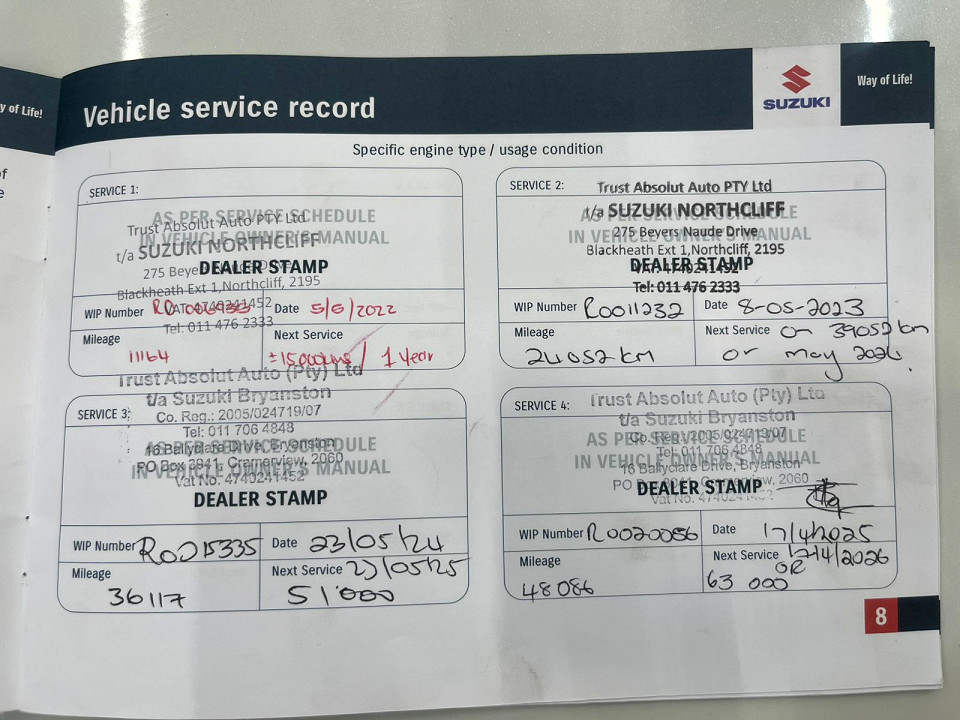 y of Life!
Vehicle service record
SUZUKI
Way of Life!
Specific engine type / usage condition
SERVICE 1:
AS PER SERVICE SCHEDULE
IN VEHICLE OWNER'S MANUAL
DEALER STAMP
Trust Absolut Auto PTY Ltd
t/a SUZUKI NORTHCLIFF
275 Beyers Naude Drive
Blackheath Ext 1, Northcliff, 2195
VAT: 4740241452
Tel: 011 476 2333
WIP Number
Date 5/5/2022
Mileage
11164
Next Service
±15000kms / 1 Year
SERVICE 2:
Trust Absolut Auto PTY Ltd
t/a SUZUKI NORTHCLIFF
AS PER SERVICE SCHEDULE
IN VEHICLE OWNER'S MANUAL
275 Beyers Naude Drive
Blackheath Ext 1,Northcliff, 2195
DEALER STAMP
VAT: 4740241452
Tel: 011 476 2333
WIP Number R0011232
Date 8-05-2023
Mileage
24052 km
Next Service on 39052 km
or may 2024.
SERVICE 3:
Trust Absolut Auto (Pty) Ltd
t/a Suzuki Bryanston
Co. Reg.: 2005/024719/07
Tel: 011 706 4848
16 Ballyclare Drive, Bryanston
PO Box 3941, Cramerview, 2060
Vat No. 4740241452
AS PER SERVICE SCHEDULE
IN VEHICLE OWNER'S MANUAL
DEALER STAMP
WIP Number R0015335
Date 23/05/24
Mileage
36117
Next Service 23/05/25
51'000
SERVICE 4:
Trust Absolut Auto (Pty) Ltd
t/a Suzuki Bryanston
Co. Reg.: 2005/024719/07
Tel: 011 706 4848
16 Ballyclare Drive, Bryanston
PO Box 3941, Cramerview, 2060
Vat No. 4740241452
AS PER SERVICE SCHEDULE
IN VEHICLE OWNER'S MANUAL
DEALER STAMP
WIP Number R0020086
Date 17/4/2025
Mileage
48086
Next Service 17/4/2026
OR
63 000
8